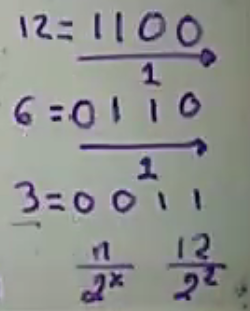 12=1100
1
6=0110
1
3=0011
n/2^x 12/2^2